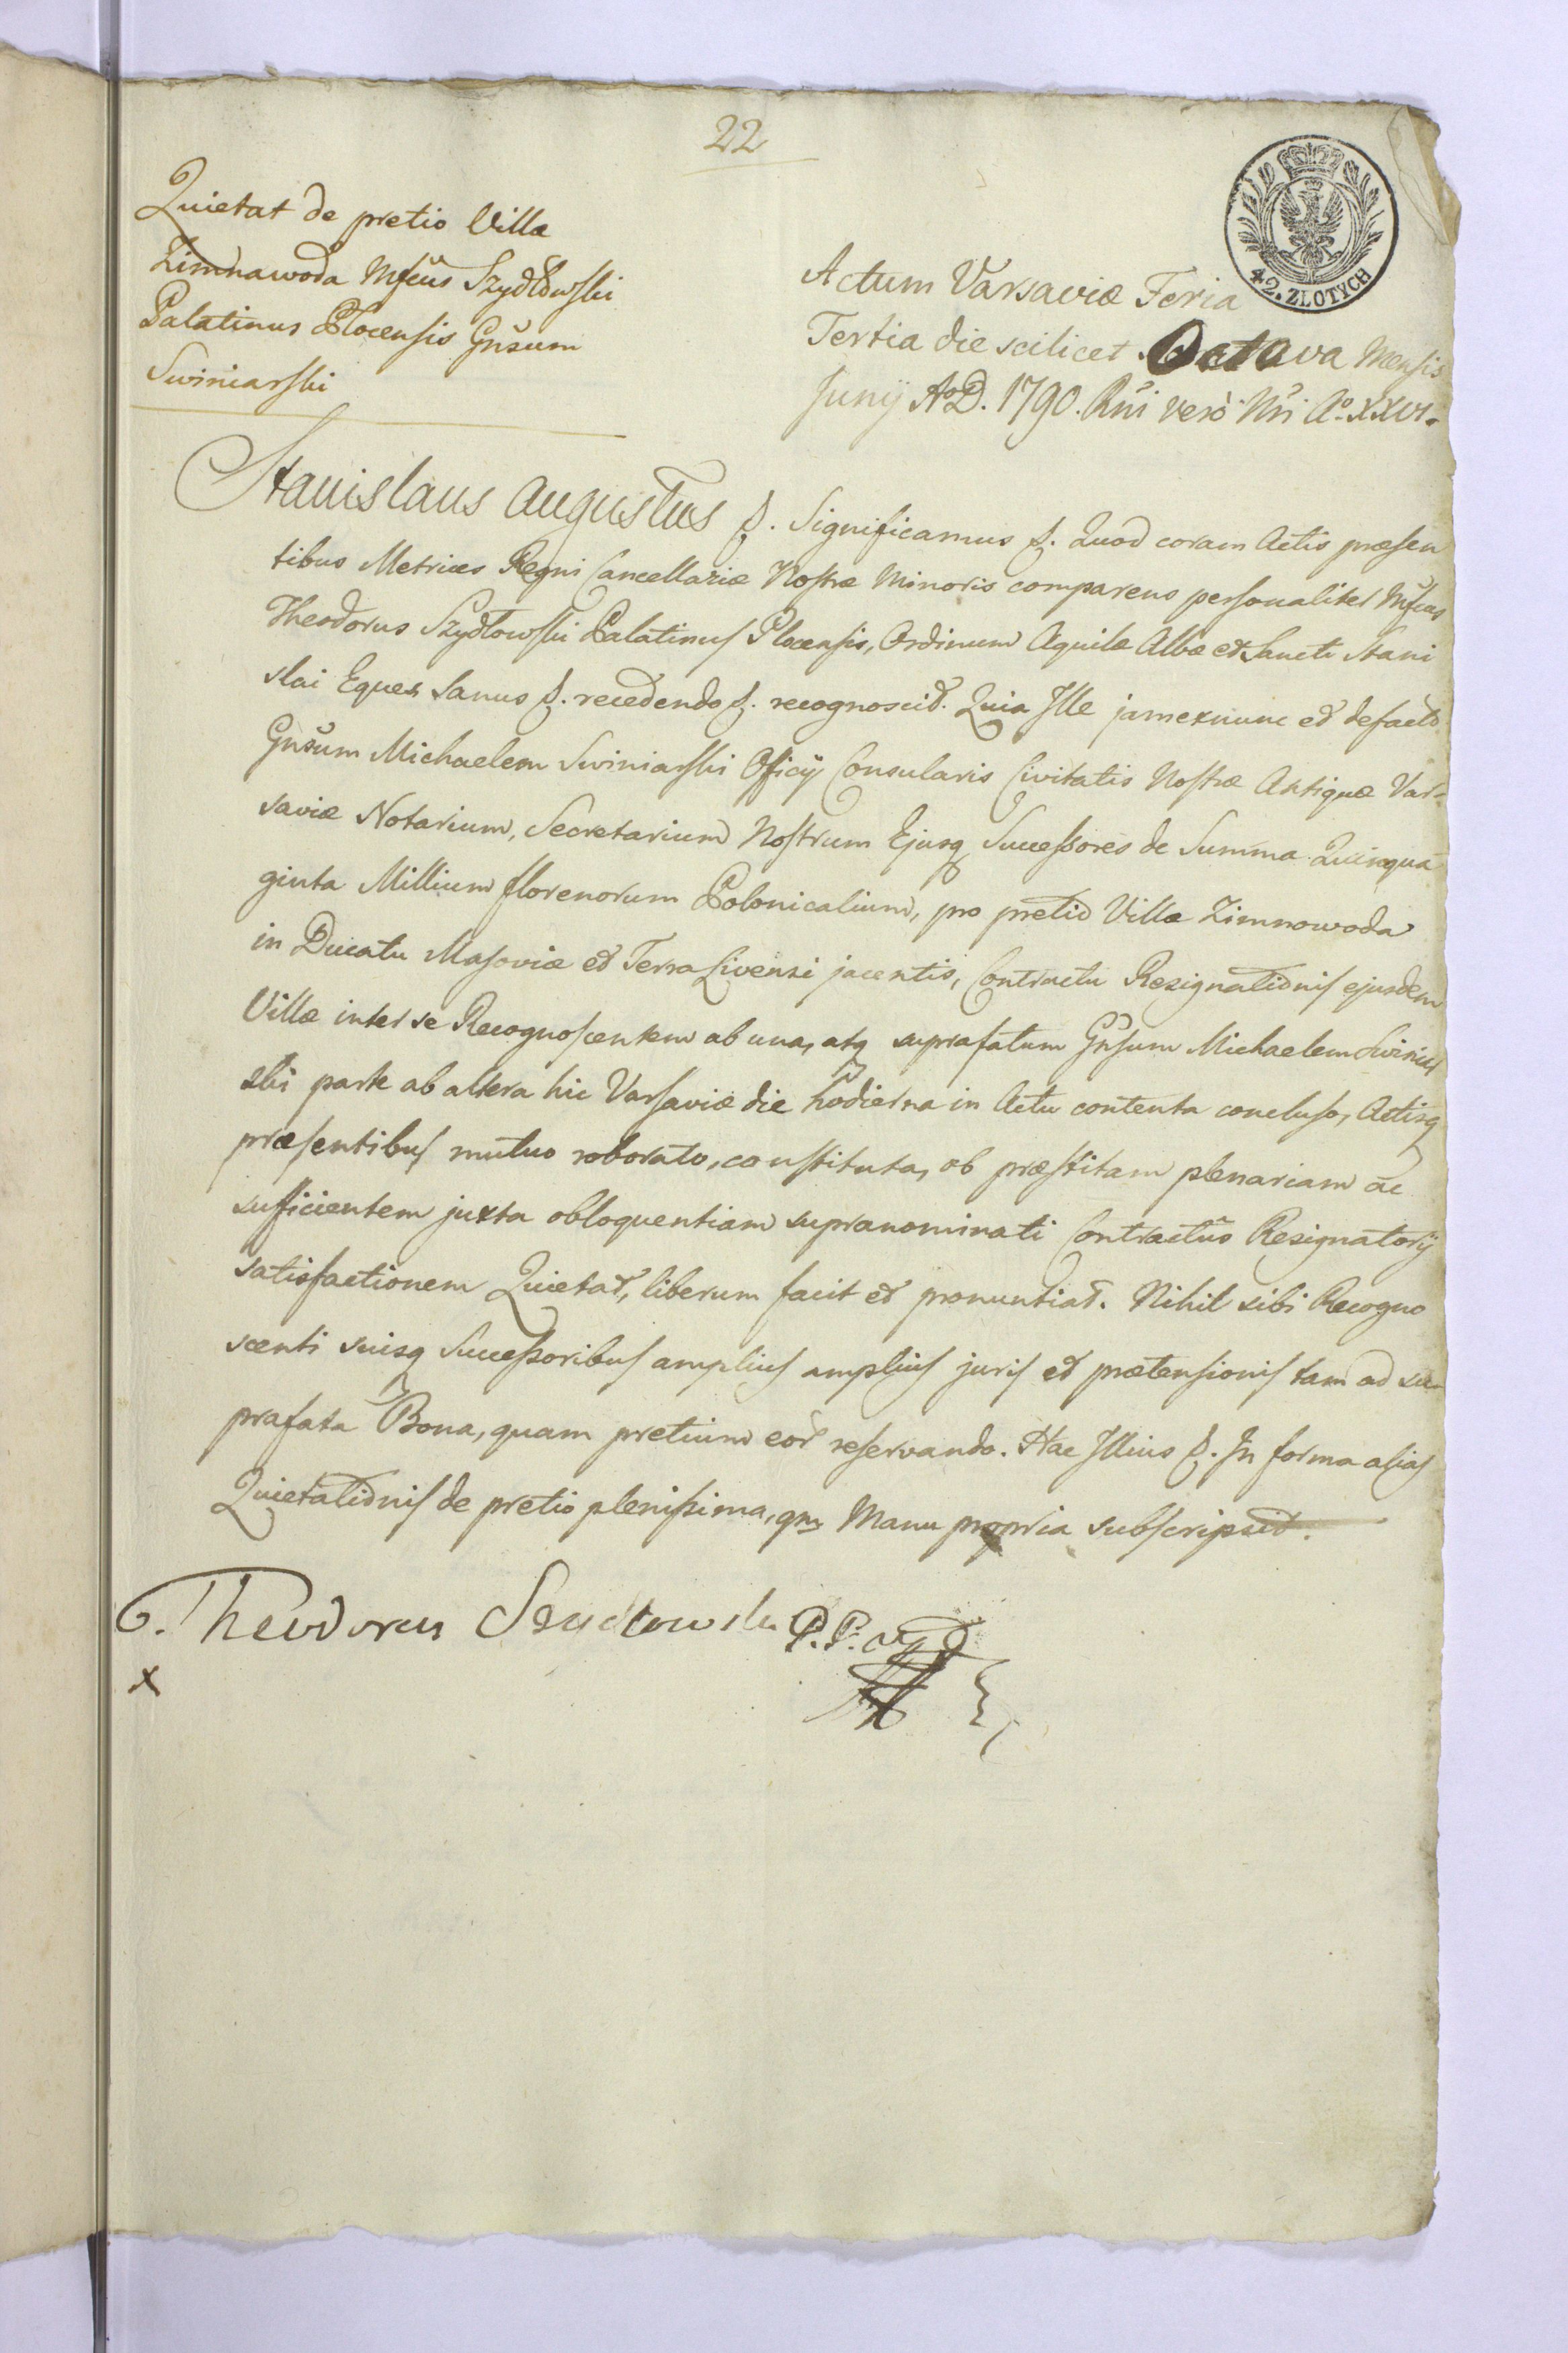 22
Quietat de pretio Villæ
Zimnawoda Mfcus Szydłowski
Palatinus Plocensis Gnsum
Swiniarski
42. ZŁOTYCH
Actum Varsaviæ Feria
Tertia die scilicet Octava Mensis
Junij A°D. 1790. Rni verò Nri A° XXVI.
Stanislaus Augustus &. Significamus &. Quod coram Actis præsen
tibus Metrices Regni Cancellariæ Nostræ Minoris comparens personaliter Mfcus
Theodorus Szydłowski Palatinus Plocensis, Ordinum Aquilæ Albæ et Sancti Stani
slai Eques Sanus &. recedendo &. recognoscit. Quia Ille jamexnunc et defacto
Gnsum Michaelem Swiniarski Officij Consularis Civitatis Nostræ Antiquæ Var=
saviæ Notarium, Secretarium Nostrum Ejusq Successores de Summa Quinqua
ginta Millium florenorum Polonicalium, pro pretio Villæ Zimnowoda
in Ducatu Masoviæ et Terra Livensi jacentis, Contractu Resignationis ejusdem
Villæ inter se Recognoscentem ab una, atq suprafatum Gnsum Michaelem Swiniar
ski parte ab altera hic Varsaviæ die hodierna in Actu contenta concluso, Actisq
præsentibus mutuo roborato, constituta, ob præstitam plenariam ac
sufficientem juxta obloquentiam supranominati Contractus Resignatorij
satisfactionem Quietat, liberum facit et pronuntiat. Nihil sibi Recogno
scenti suisq Successoribus amplius amplius juris et prætensionis tam ad su=
prafata Bona, quam pretium eor reservando. Hac Illius &. In forma alias
Quietationis de pretio plenissima, qm Manu propria subscripsit.
Theodorus Szydłowski P. P.
x